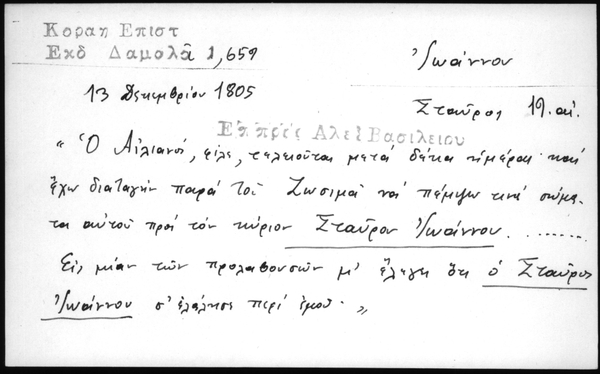 Κοραη Επιστ
Εκδ Δαμολᾶ 1,659
Ἰωάννου
13 Δεκεμβρίου 1805
Σταῦρος 19. αἰ.
Επ προς Αλεξ Βασιλειου
"Ὁ Αἰλιανός, φίλε, τελειοῦται μετά δέκα ἡμέρας καί
ἔχω διαταγήν παρά τοῦ Ζωσιμᾶ νά πέμψω τινά σώμα-
τα αὐτοῦ πρός τόν κύριον Σταῦρον Ἰωάννου..........
Εἰς μίαν τῶν προλαβουσῶν μ' ἔλεγες ὅτι ὁ Σταῦρος
Ἰωάννου σ' ἐλάλησε περί ἐμοῦ."